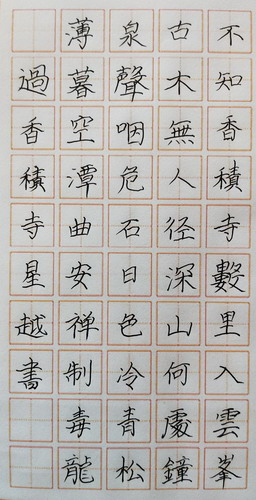 不知香積寺數里入雲峯
古木無人径深山何處鐘
泉聲咽危石日色冷青松
薄暮空潭曲安禅制毒龍
過香積寺星越書